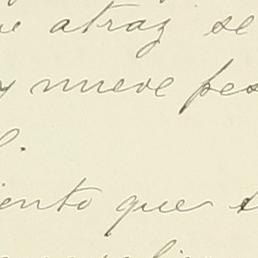 atraz se
y nueve pes
iento que s